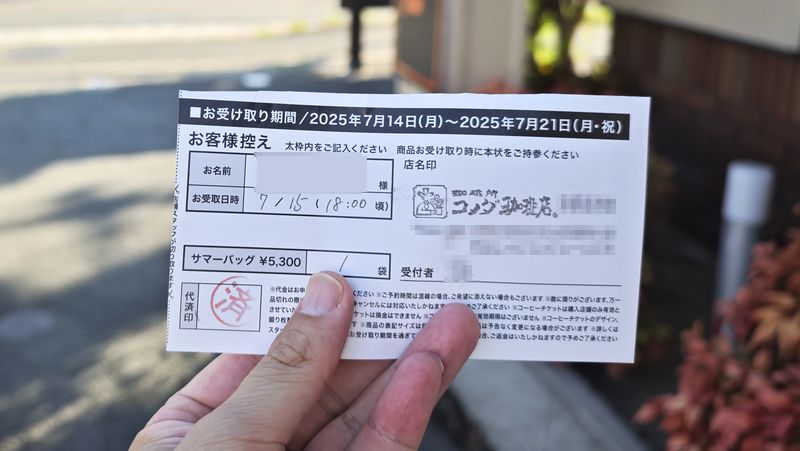 ■お受け取り期間/2025年7月14日(月)~2025年7月21日(月・祝)
お客様控え 太枠内をご記入ください 商品お受け取り時に本状をご持参ください
お名前 様
店名印
お受取日時 7/15(18:00頃)
珈琲所
コメダ珈琲店®
サマーバッグ ¥5,300 1 袋
受付者
代済印
※代金はお申
ください ※ご予約時間は混雑の場合、ご希望に添えない場合もございます ※数に限りがございます、万一
品切れの際
キャンセルには対応いたしかねます
のでご了承ください ※コーヒーチケットは購入店舗のみ有効と
ケットは換金はできません
有効期限はございません ※コーヒーチケットのデザイン、
綴り枚
※商品の表記サイズは
は予告なく変更になる場合がございます ※詳しくは
スタ
お受け取り期間を過ぎて
、ご返金はいたしかねますので予めご了承ください